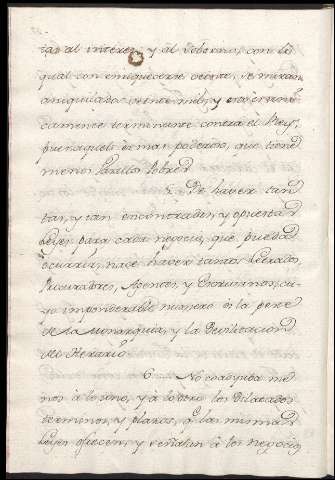 tas al interes, y al soborno, con lo
qual con enriquecerse ochenta, se miran
aniquilados ochenta mil, y es igual
camente terminante contra el Rey,
pues aquel es mas poderoso, que tiene
menos Vasallos pobres
5. De haver tan
tas, y tan encontradas, y opuestas
Leyes para cada negocio, que pueda
ocurrir, nace haver tantos Letrados,
Procuradores, Agentes, y Escrivanos, cu-
yo imponderable numero es la peste
de la Monarquia, y la Devilitacion
del Herario
6. No coadyuba me
nos à lo uno, y à lo otro los dilatados
terminos, y plazos, q.e las mismas
Leyes ofrecen, y señalan à los negocios